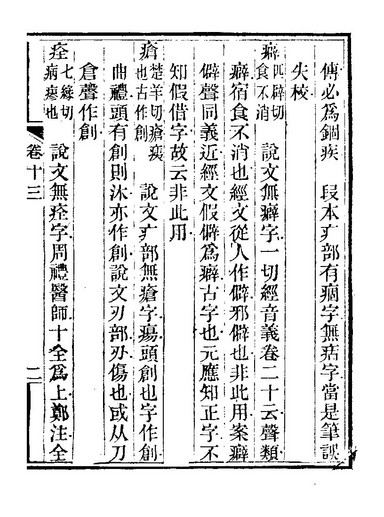 傳必爲錮疾　段本疒部有痼字無㾇字當是筆誤
失校
癖四辟切食不消　說文無癖字一切經音義卷二十云聲類
癖宿食不消也經文從人作僻邪僻也非此用案癖
僻聲同義近經文假僻爲癖古字也元應知正字不
知假借字故云非此用
瘡楚羊切瘡痍也古作創　說文疒部無瘡字瘍頭創也字作創
曲禮頭有創則沐亦作創說文刃部刅傷也或从刀
倉聲作創
痊七緣切病瘳也　說文無痊字周禮醫師十全爲上鄭注全
卷十三
二